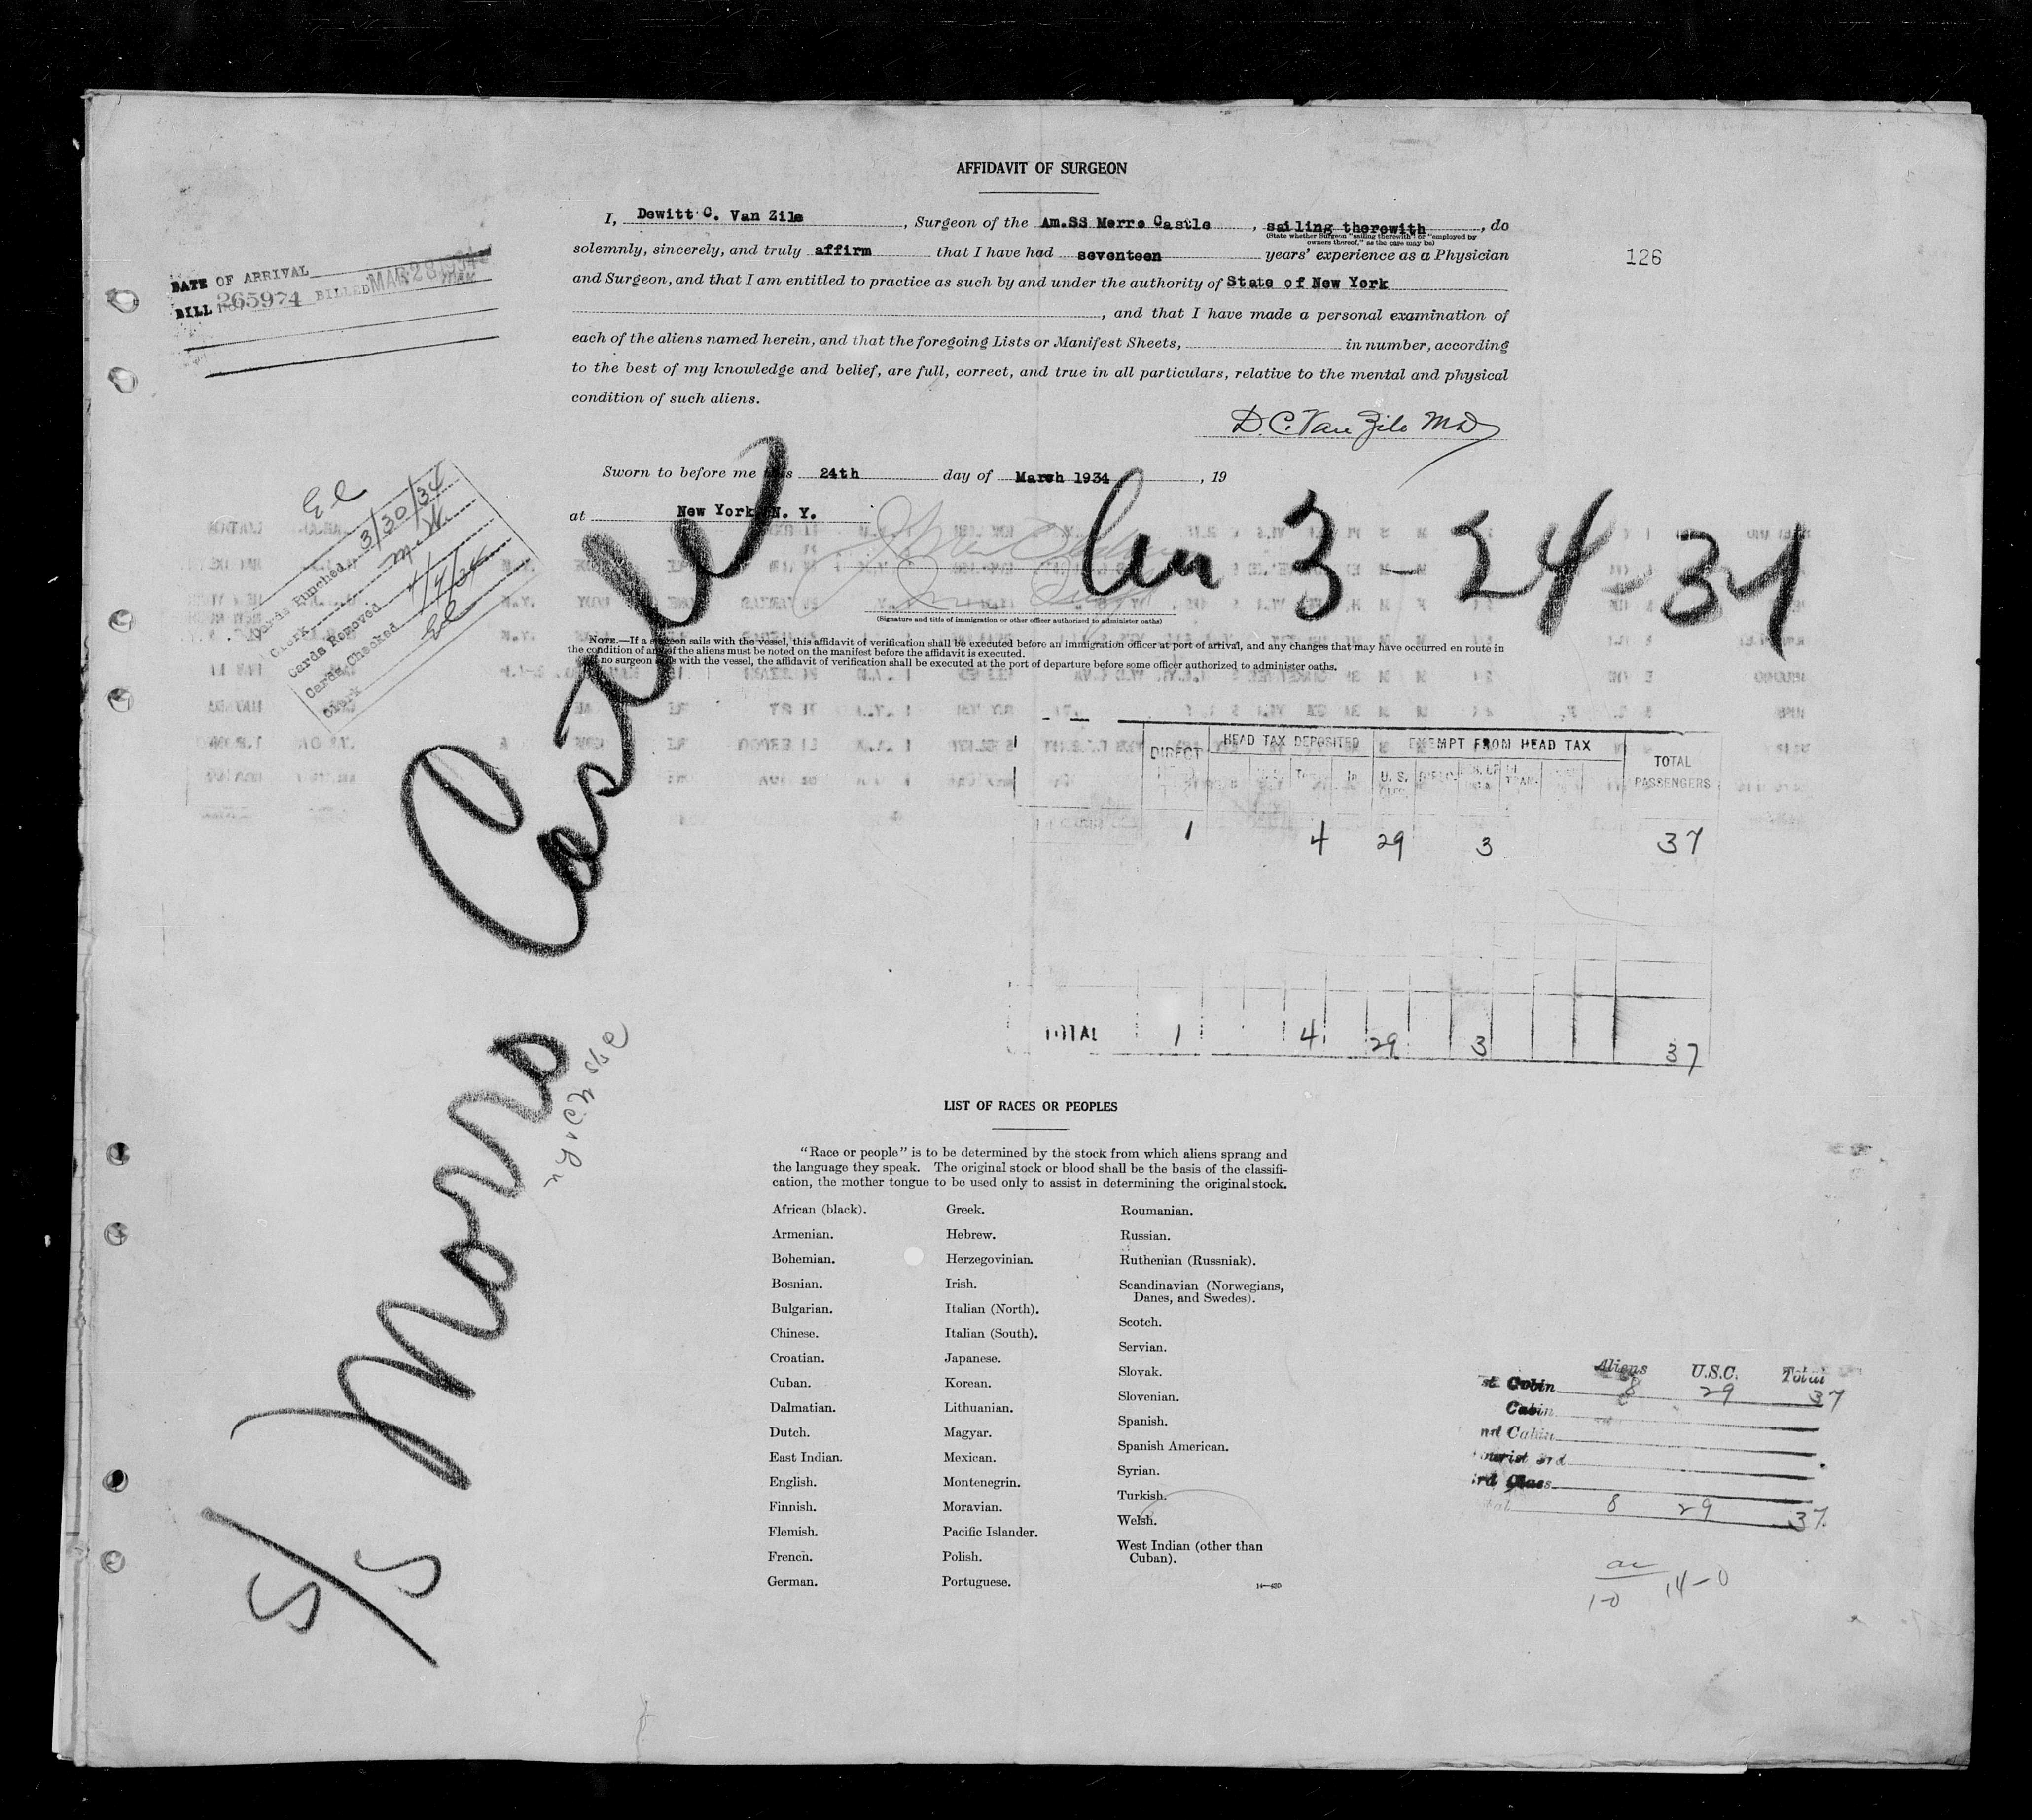 AFFIDAVIT OF SURGEON
I, Dewitt C. Van Zile, Surgeon of the Am.SS Merro Castle, sailing therewith, do
(State whether Surgeon "sailing therewith" or "employed by
owners thereof," as the case may be)
solemnly, sincerely, and truly affirm that I have had seventeen years' experience as a Physician
and Surgeon, and that I am entitled to practice as such by and under the authority of State of New York
, and that I have made a personal examination of
each of the aliens named herein, and that the foregoing Lists or Manifest Sheets, in number, according
to the best of my knowledge and belief, are full, correct, and true in all particulars, relative to the mental and physical
condition of such aliens.
D. C. Van Zile MD
126
DATE OF ARRIVAL
BILL No. 265974 BILLED MAR 28 1934
Sworn to before me this 24th day of March 1934, 19
at New York, N. Y.
(Signature and title of immigration or other officer authorized to administer oaths)
3-24-34
El
Cards Punched 3/30/34
Clerk M.W.
Cards Removed
Cards Checked 4/9/34
Clerk El
NOTE.—If a surgeon sails with the vessel, this affidavit of verification shall be executed before an immigration officer at port of arrival, and any changes that may have occurred en route in
the condition of any of the aliens must be noted on the manifest before the affidavit is executed.
If no surgeon sails with the vessel, the affidavit of verification shall be executed at the port of departure before some officer authorized to administer oaths.
S/S Morro Castle
DIRECT HEAD TAX DEPOSITED EXEMPT FROM HEAD TAX TOTAL PASSENGERS
U. S.
1 4 29 3 37
TOTAL 1 4 29 3 37
LIST OF RACES OR PEOPLES
"Race or people" is to be determined by the stock from which aliens sprang and
the language they speak. The original stock or blood shall be the basis of the classifi-
cation, the mother tongue to be used only to assist in determining the original stock.
African (black).
Armenian.
Bohemian.
Bosnian.
Bulgarian.
Chinese.
Croatian.
Cuban.
Dalmatian.
Dutch.
East Indian.
English.
Finnish.
Flemish.
French.
German.
Greek.
Hebrew.
Herzegovinian.
Irish.
Italian (North).
Italian (South).
Japanese.
Korean.
Lithuanian.
Magyar.
Mexican.
Montenegrin.
Moravian.
Pacific Islander.
Polish.
Portuguese.
Roumanian.
Russian.
Ruthenian (Russniak).
Scandinavian (Norwegians,
Danes, and Swedes).
Scotch.
Servian.
Slovak.
Slovenian.
Spanish.
Spanish American.
Syrian.
Turkish.
Welsh.
West Indian (other than
Cuban).
Aliens U.S.C. Total
st Cabin 8 29 37
Cabin
nd Cabin
ourist 3rd
rd Class
tal 8 29 37
14-0
1-0